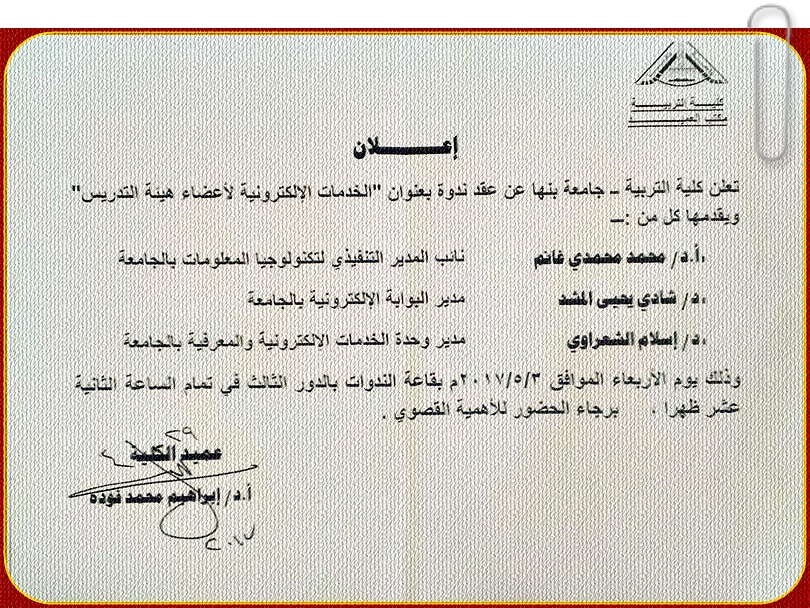 كليـــة التربيـــــــة
مكتب العميـــــــــد
إعـــــــــلان
تعلن كلية التربية – جامعة بنها عن عقد ندوة بعنوان "الخدمات الإلكترونية لأعضاء هيئة التدريس"
ويقدمها كل من :–
أ.د/ محمد محمدي غانم نائب المدير التنفيذي لتكنولوجيا المعلومات بالجامعة
د/ شادي يحيى المشد مدير البوابة الإلكترونية بالجامعة
د/ إسلام الشعراوي مدير وحدة الخدمات الالكترونية والمعرفية بالجامعة
وذلك يوم الأربعاء الموافق ٢٠١٧/٥/٣م بقاعة الندوات بالدور الثالث في تمام الساعة الثانية
عشر ظهرا . برجاء الحضور للأهمية القصوي .
٢٩
عميد الكلية
٤
أ.د/ إبراهيم محمد فوده
٢٠١٧